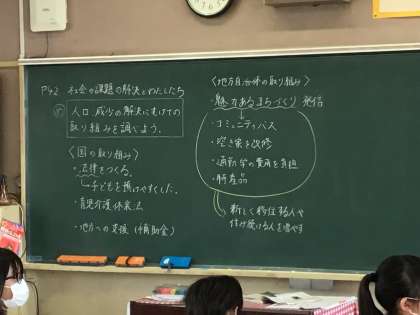 P42 社会の課題の解決とわたしたち
人口減少の解決にむけての
取り組みを調べよう。
〈国の取り組み〉
・法律をつくる。
→子どもを預けやすくした。
・育児介護休業法
・地方への支援（補助金）
〈地方自治体の取り組み〉
・魅力あるまちづくり 発信
・コミュニティバス
・空き家を改修
・通勤・学の費用を負担
・特産品
新しく移住する人や
住み続ける人を増やす